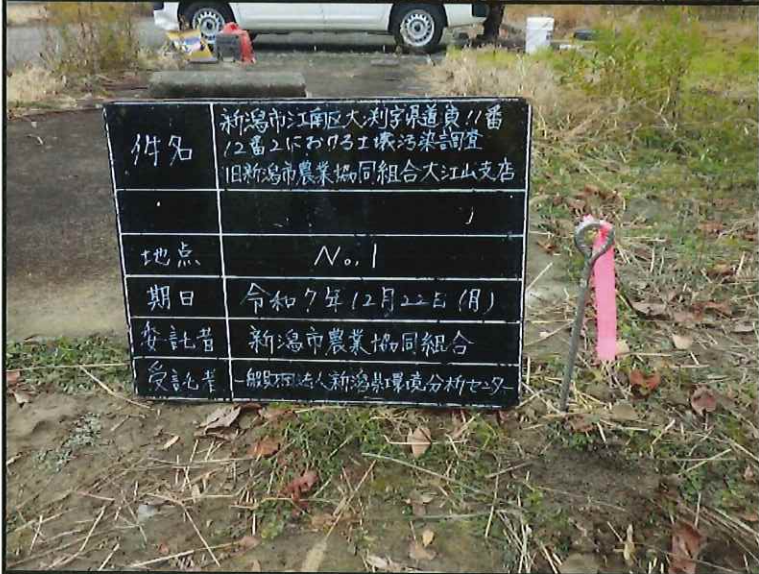 件名 新潟市江南区大渕字県道東11番
12番2における土壌汚染調査
旧新潟市農業協同組合大江山支店
地点 No.1
期日 令和7年12月22日(月)
委託者 新潟市農業協同組合
受託者 一般社団法人新潟県環境分析センター